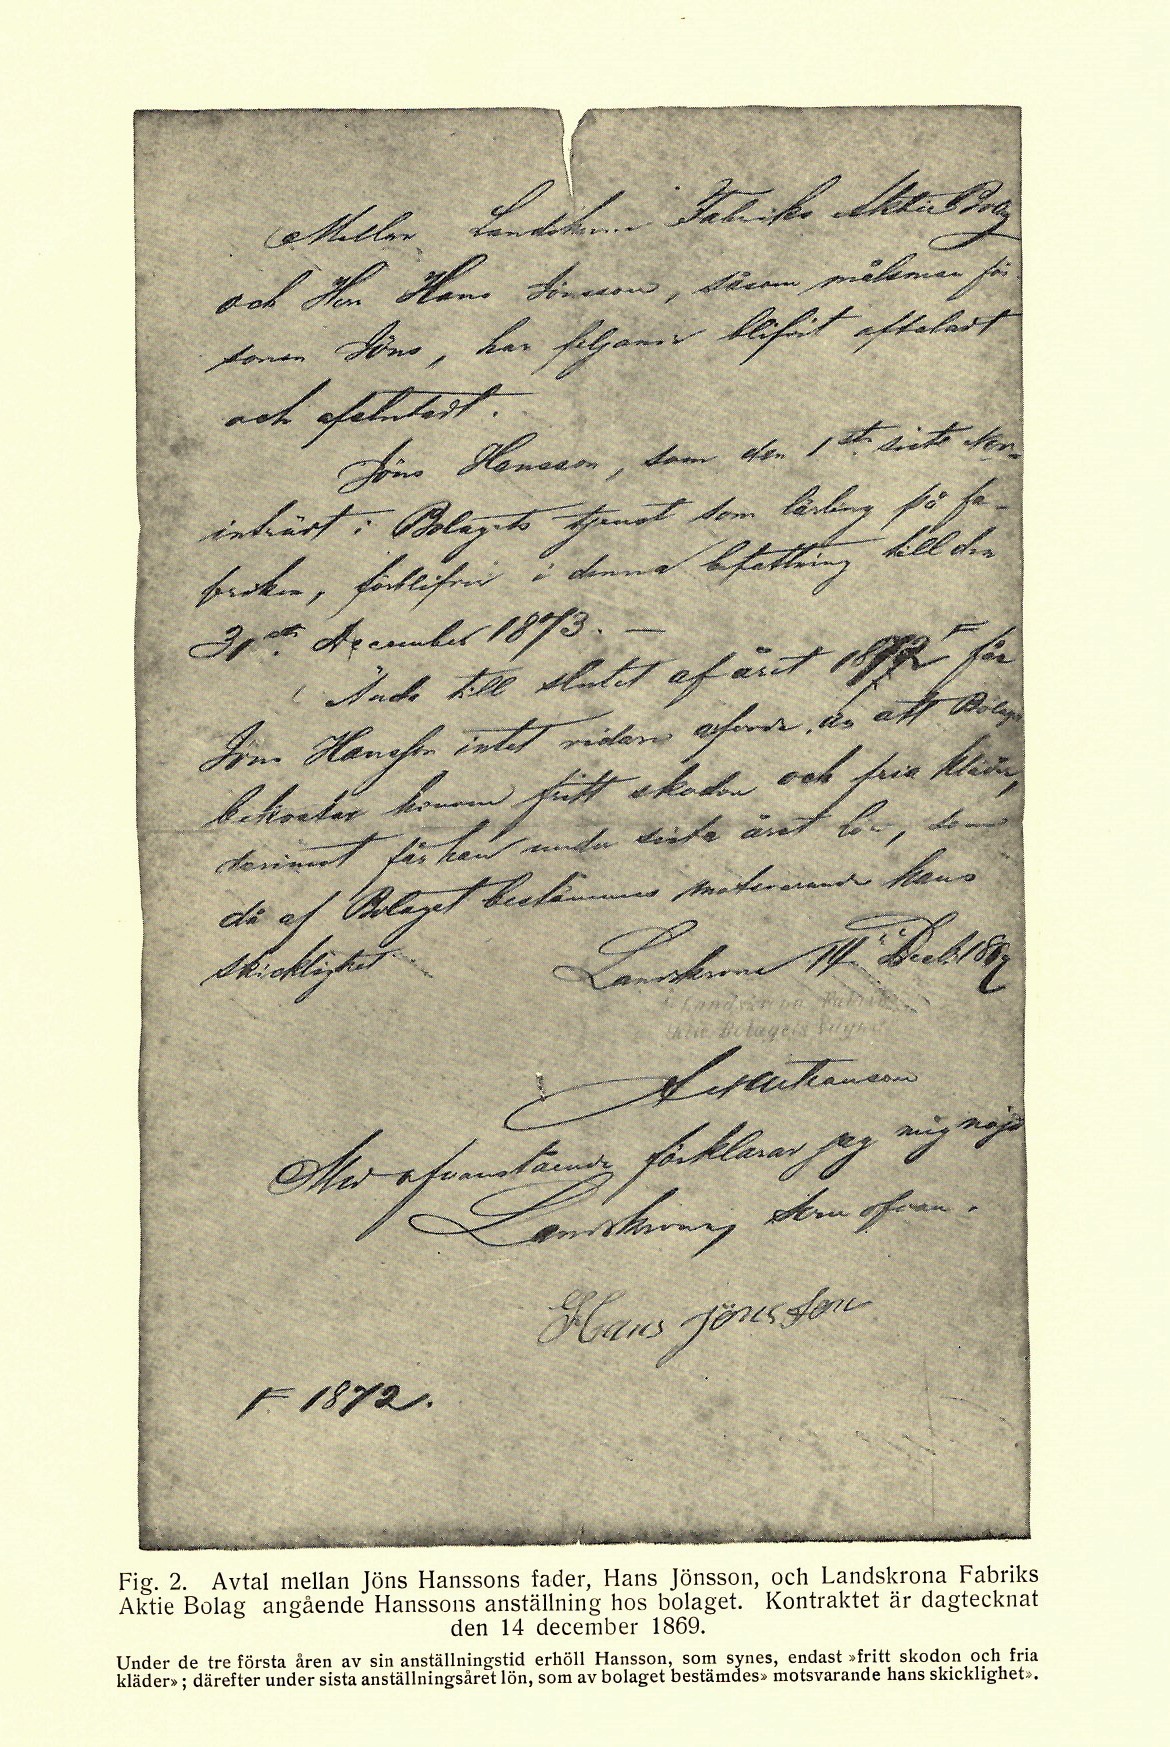 Mellan Landskrona Fabriks Aktie Bolag
och Herr Hans Jönsson, såsom målsman för
sonen Jöns, har följande blifvit aftaladt
och afslutadt.
Jöns Hansson, som den 1sta sistl. Nov-
inträdt i Bolagets tjenst som lärling på fa-
briken, förblifver i denna befattning till den
31sta December 1873. —
Ända till slutet af året 1872 F får
Jöns Hansson intet vidare än att Bolaget
bekostar honom fritt skodon och fria kläder,
deremot får han under sista året lön, som
då af Bolaget bestämmes motsvarande hans
skicklighet
Landskrona 14 Decbr 1869
Landskrona Fabriks
Aktie Bolagets
Med ofvanstående förklarar jag mig nöjd
Landskrona, som ofvan.
Hans Jönsson
F 1872.
Fig. 2. Avtal mellan Jöns Hanssons fader, Hans Jönsson, och Landskrona Fabriks
Aktie Bolag angående Hanssons anställning hos bolaget. Kontraktet är dagtecknat
den 14 december 1869.
Under de tre första åren av sin anställningstid erhöll Hansson, som synes, endast »fritt skodon och fria
kläder»; därefter under sista anställningsåret lön, som av bolaget bestämdes» motsvarande hans skicklighet».